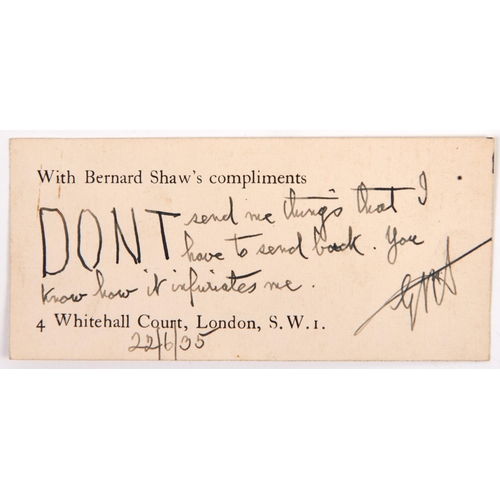 With Bernard Shaw's compliments
DONT send me things that I
have to send back. You
know how it infuriates me.
GBS
4 Whitehall Court, London, S.W.1.
22/6/35